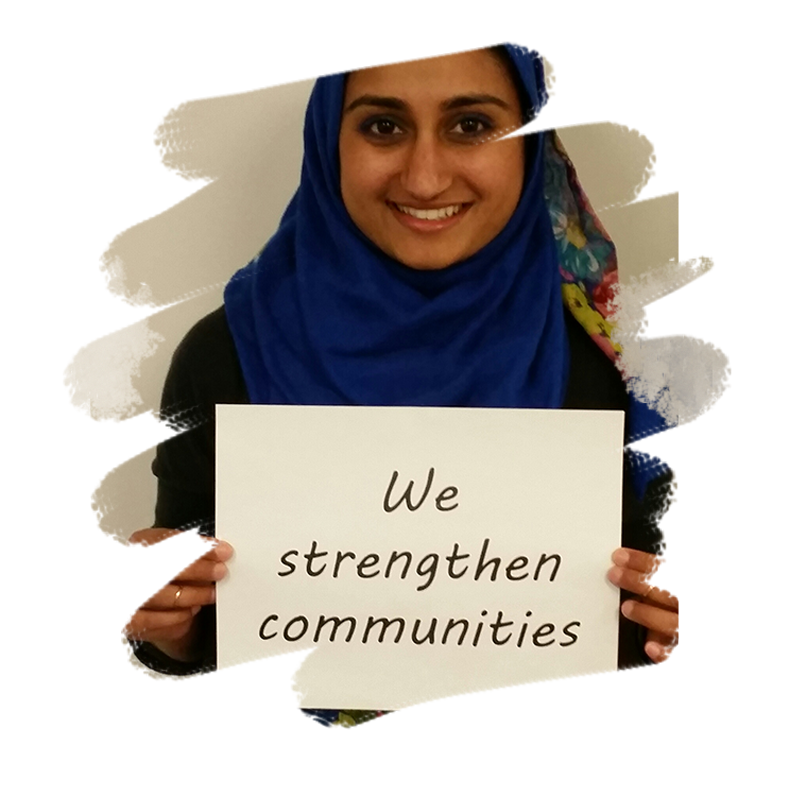 We
strengthen
communities